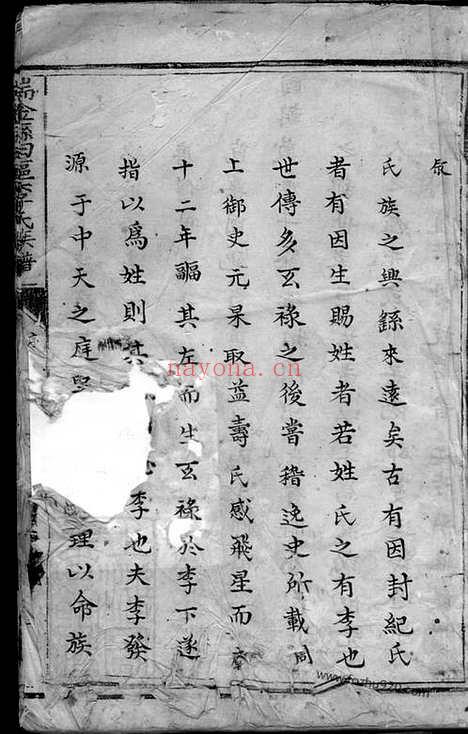 氏族之興繇來遠矣古有因封紀氏
者有因生賜姓者若姓氏之有李也
世傳多玄祿之後嘗稽逸史所載同
上御史元杲取益壽氏感飛星而
十二年其左而生玄祿於李下遂
指以爲姓則其李也夫李發
源于中天之庭堅理以命族
瑞金縣區李氏族譜
nayona.cn
www.fozhu920.com